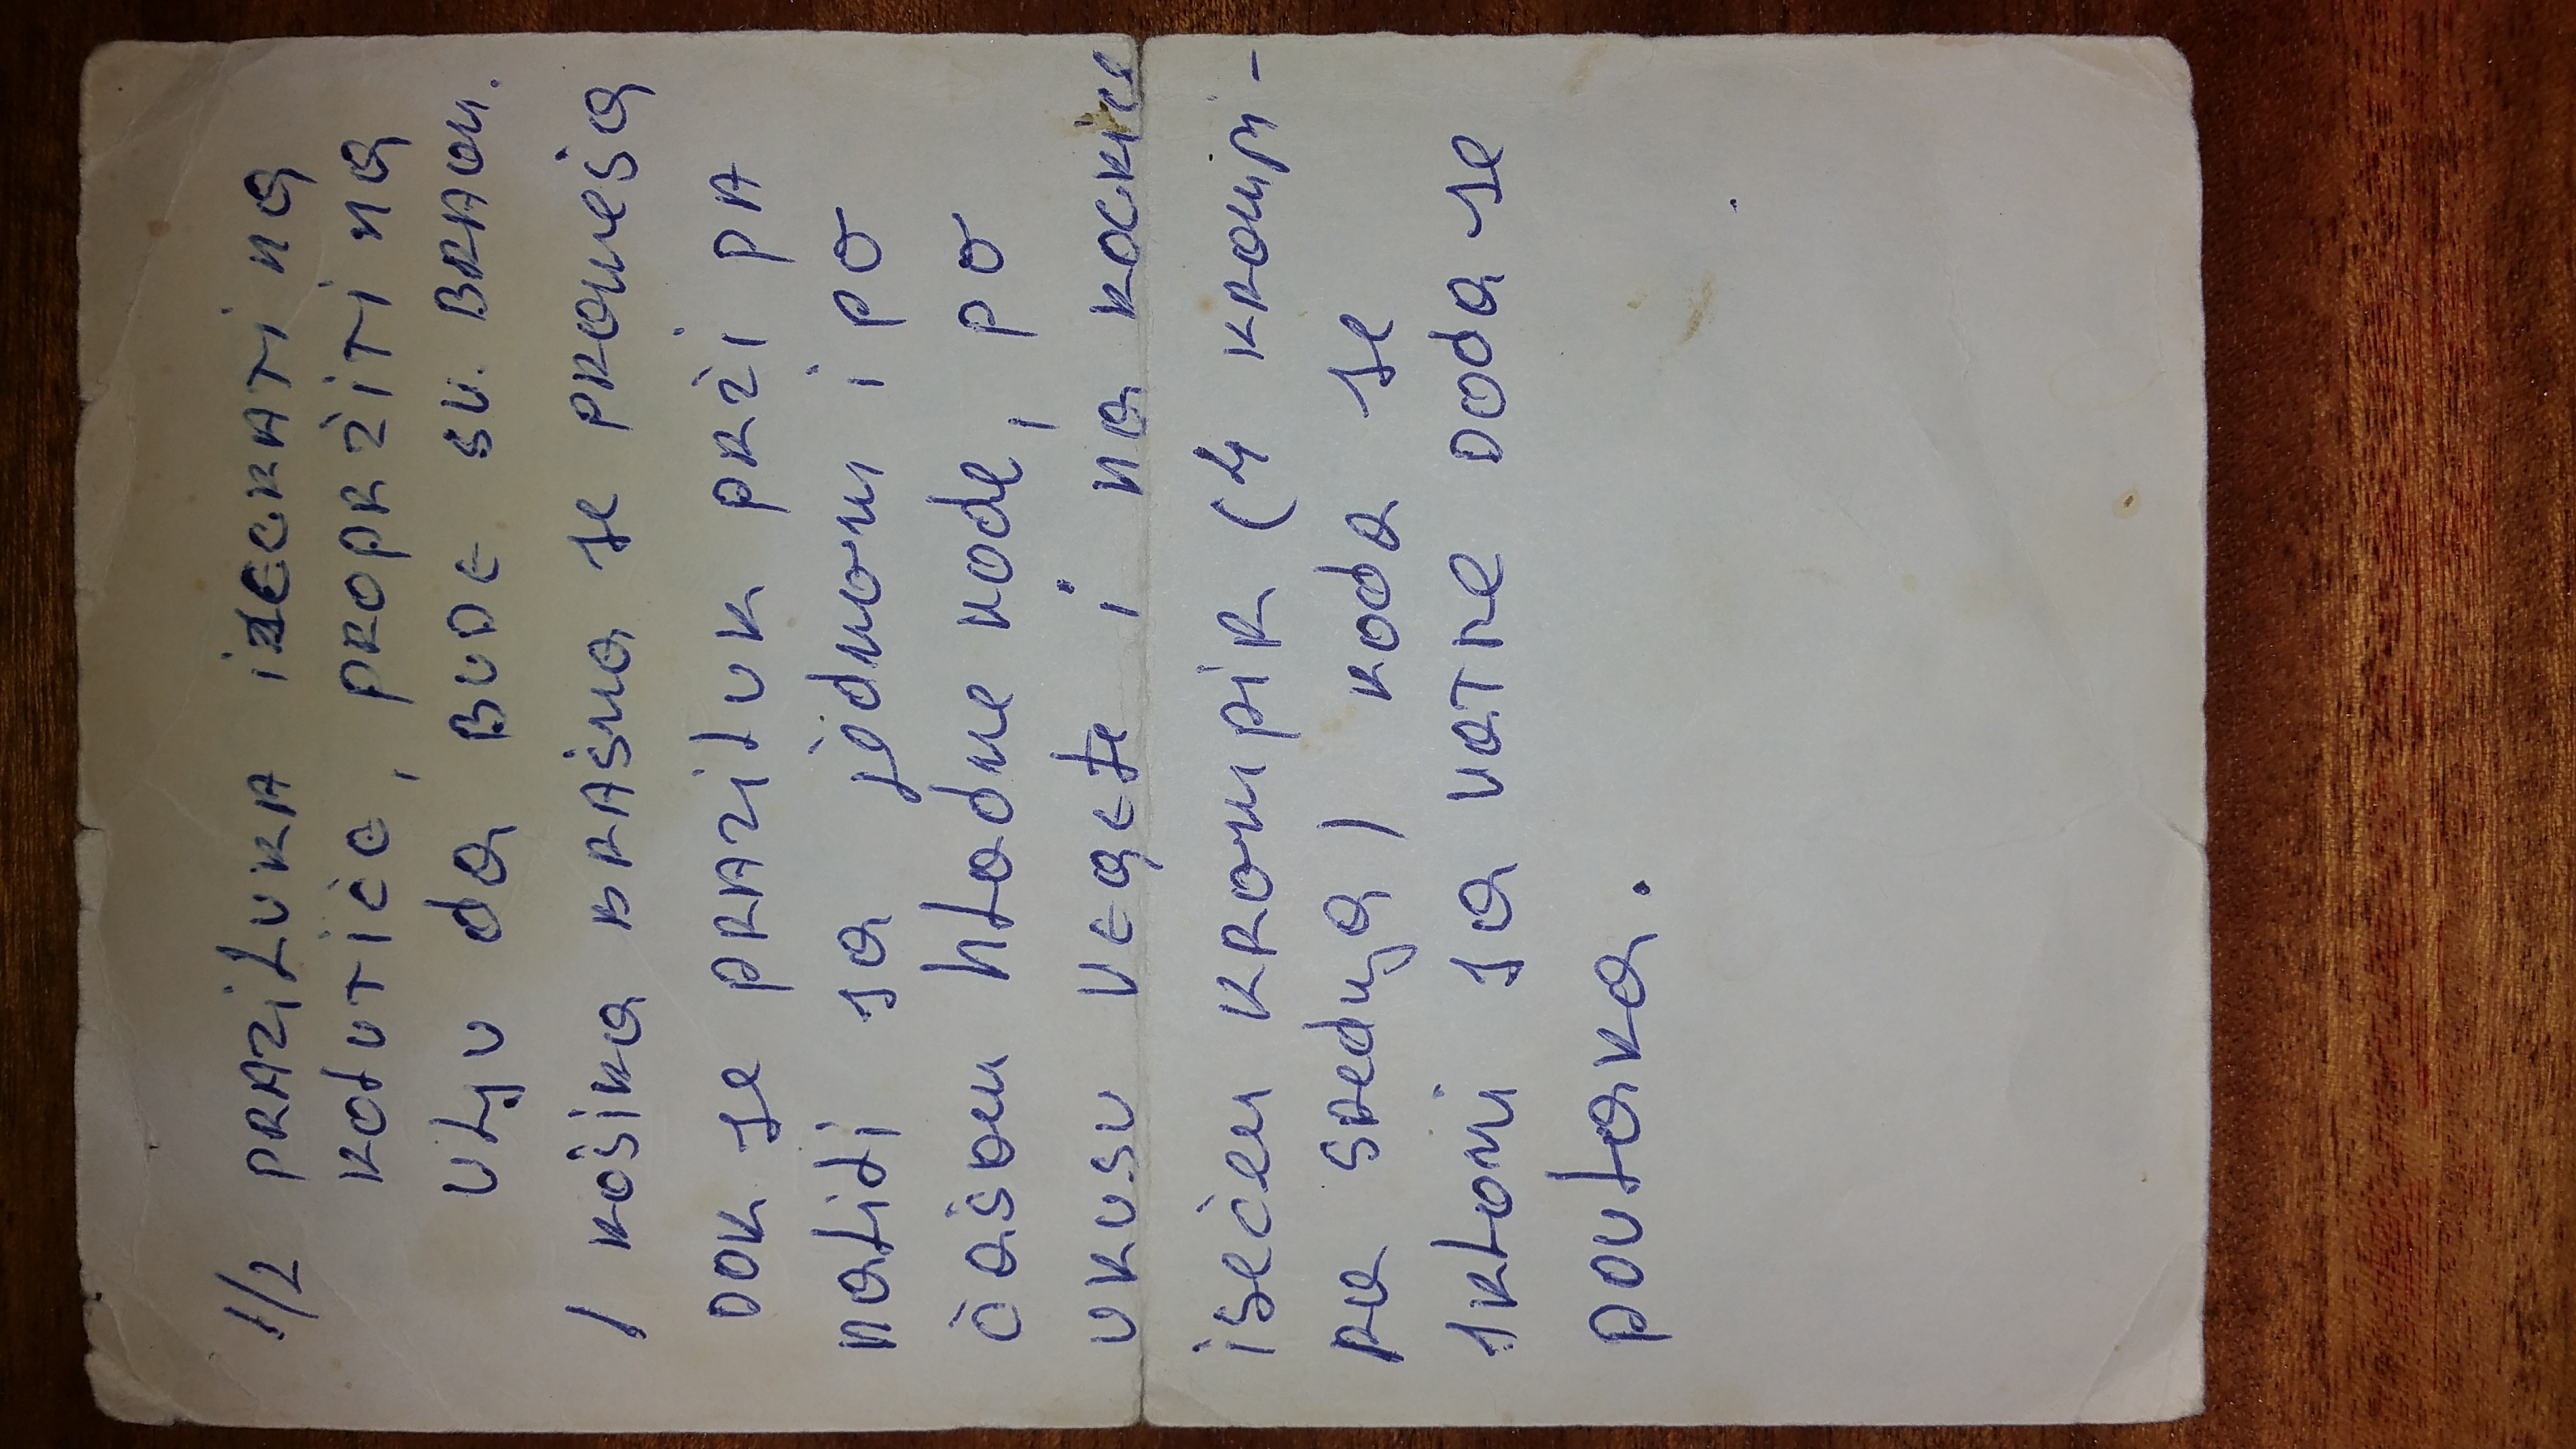 1/2 PRAZILUKA ISECKATI na
KOLUTIĆE, PROPRŽITI na
ULJU da BUDE SV. BRAON.
1 kašika BRAŠna se promeša
DOK se PRAZILUK PRŽI PA
naliti sa jednom i po
čašom hladne vode, po
UKUSU VEGETe i na kockice
isečen KROMPIR (4 krompi-
ra srednja) kada se
skloni sa vatre DODa se
pavlaka.